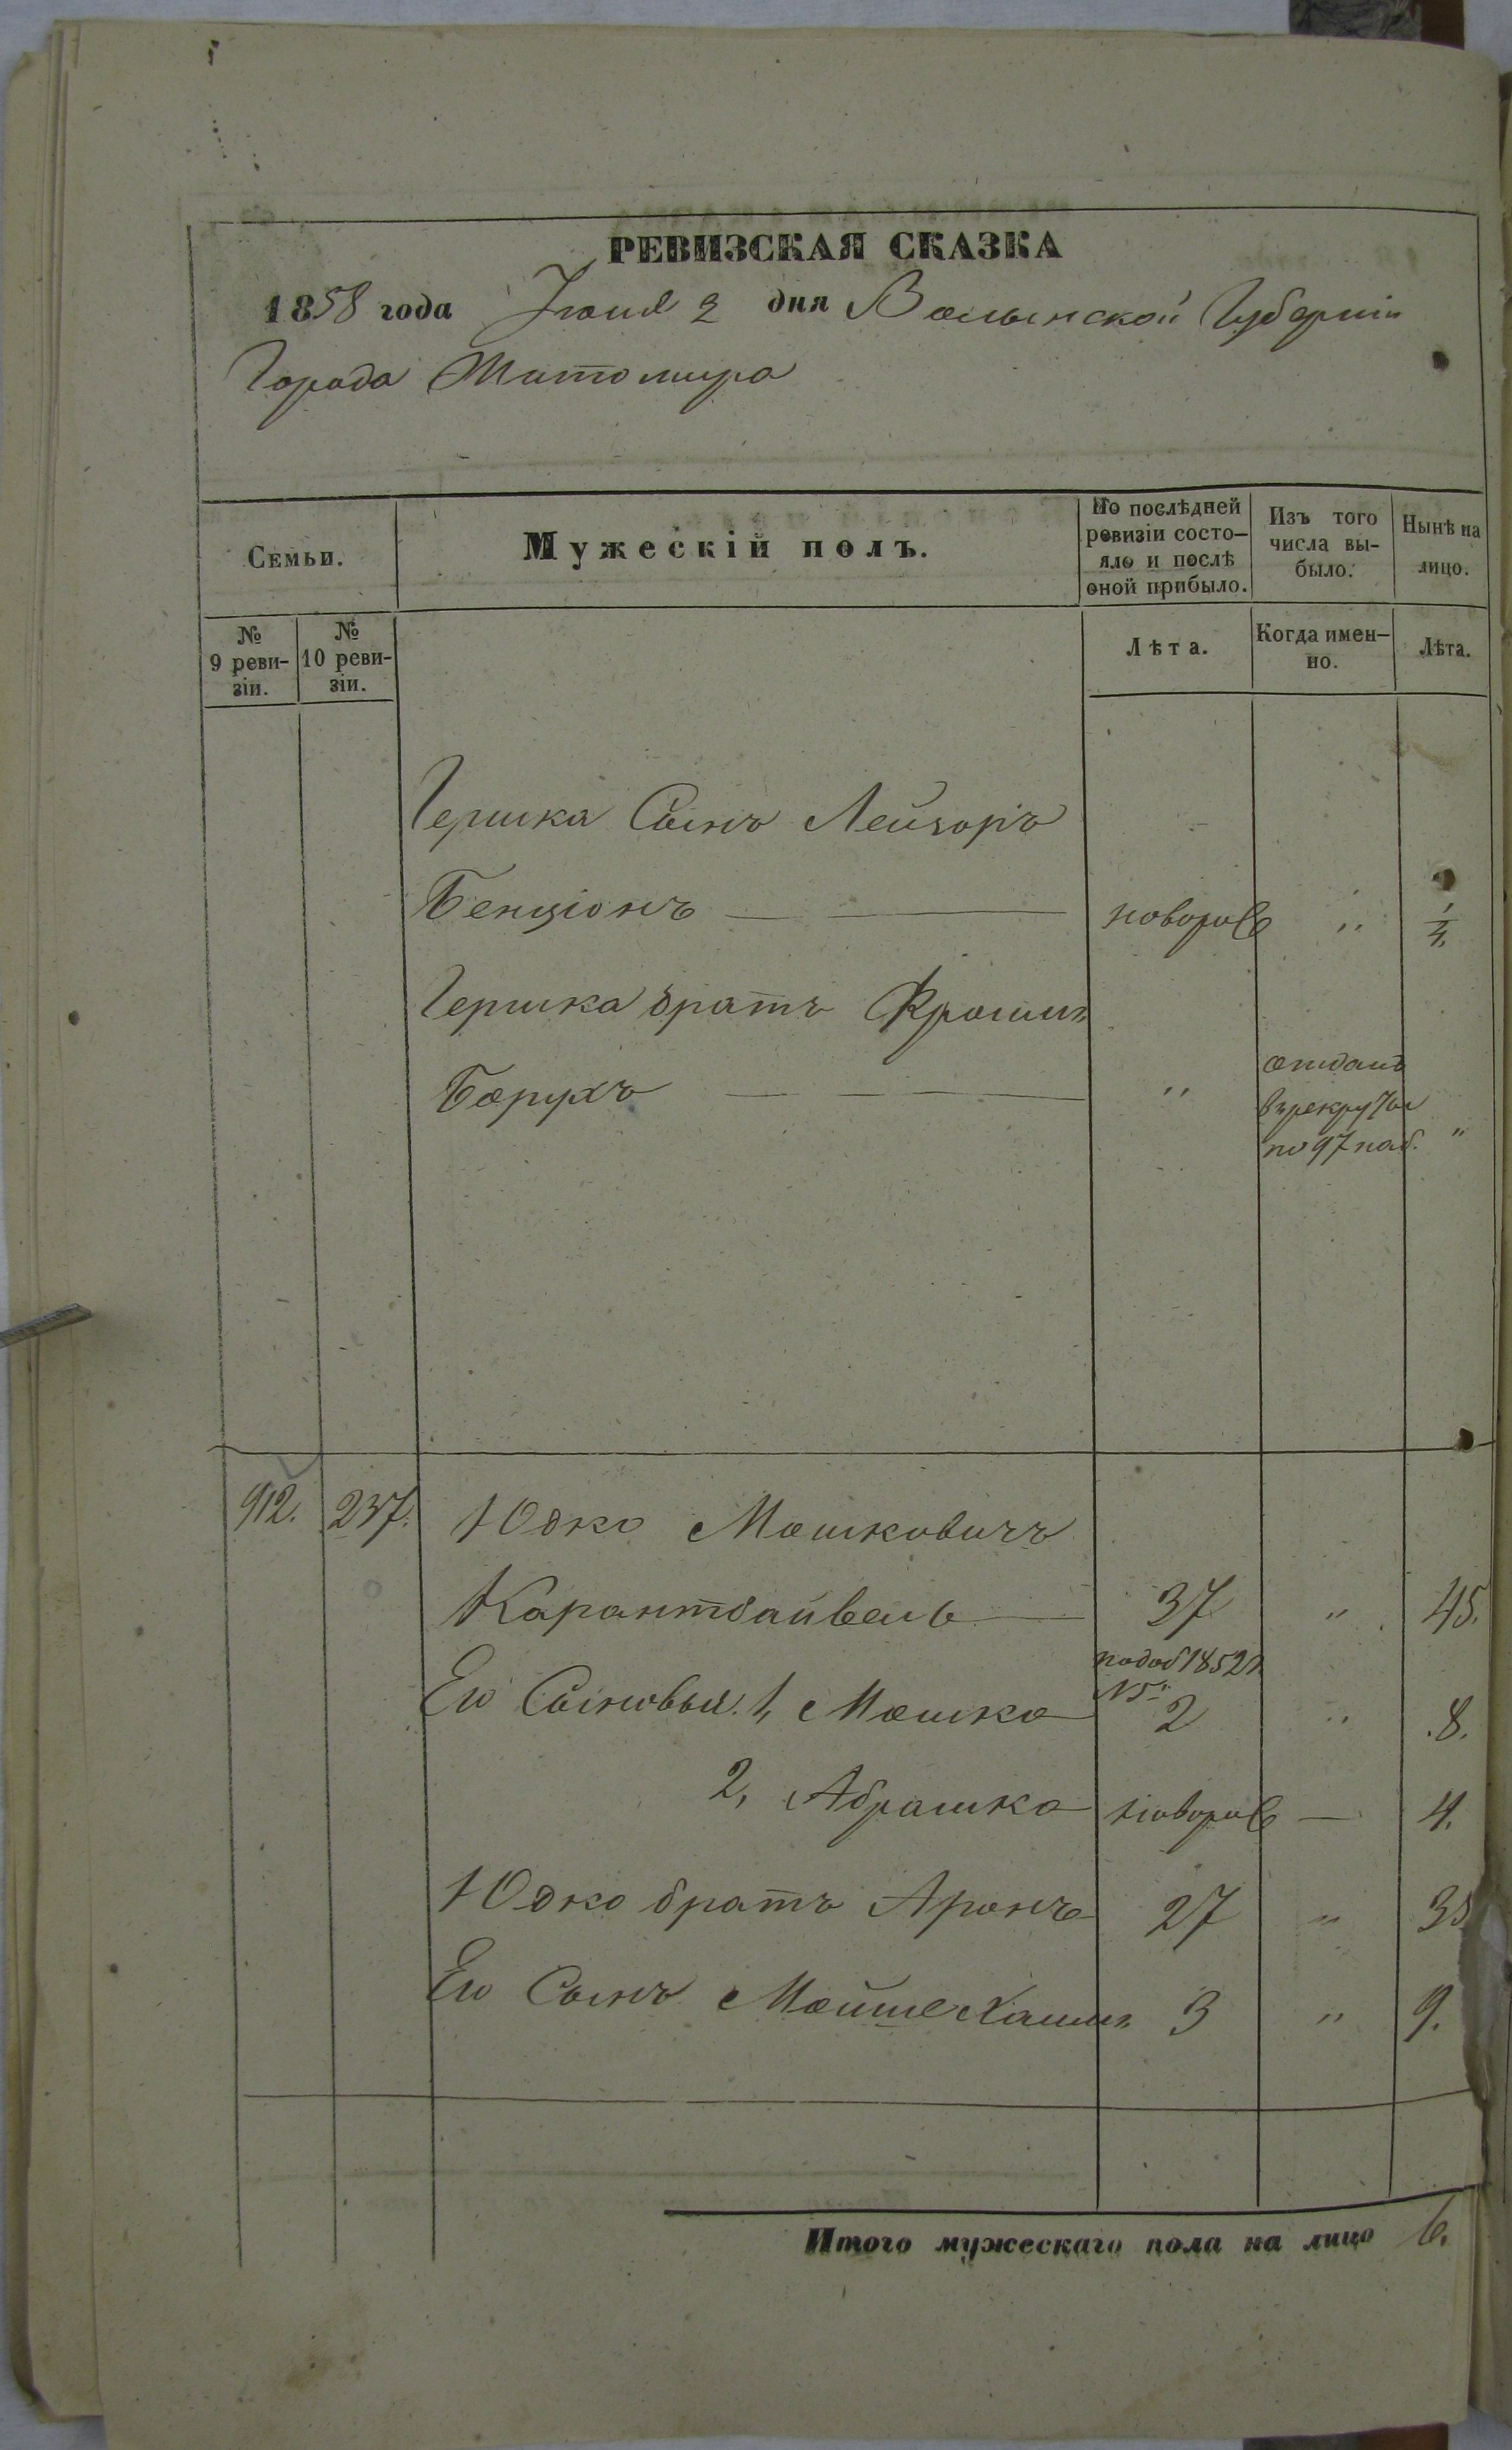 РЕВИЗСКАЯ СКАЗКА
1858 года Іюня 2 дня Волынской Губерніи
Города Житомира
Семьи.
Мужескій полъ.
По послѣдней
ревизіи состо-
яло и послѣ
оной прибыло.
Изъ того
числа вы-
было.
Нынѣ на
лицо.
№
9 реви-
зіи.
№
10 реви-
зіи.
Лѣта.
Когда имен-
но.
Лѣта.
Гершка Сынъ Лейзоръ
Бенціонъ — — новорож „ 1/4
Гершка братъ Фроимъ
Борухъ — — „ отданъ
въ рекруты
по 97 наб. „
912. 237. Юдко Мошковичъ
Карантбайвель — 37 „ 45.
по доп 1852 г
Его Сыновья 1, Мошко 2 „ 8.
2, Абрашко новорож — 4.
Юдко братъ Аронъ 27 „ 35
Его Сынъ Мойше Хаимъ 3 „ 9.
Итого мужескаго пола на лицо 6.